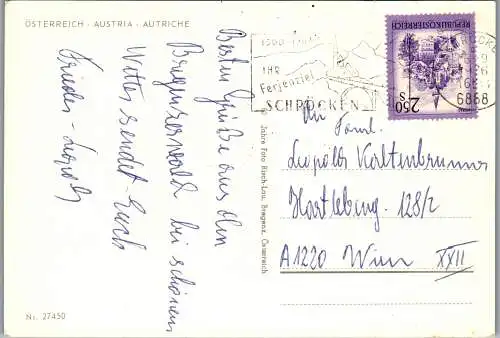 ÖSTERREICH - AUSTRIA - AUTRICHE
Besten Grüße aus dem
Bregenzerwald bei schönem
Wetter sendet Euch
Frieder - Leopold
Nr. 27450
Jahre Foto Risch-Lau, Bregenz, Österreich
IHR
Ferienziel
SCHRÖCKEN
6888
REPUBLIK ÖSTERREICH
S 2.50
An Faml.
Leopold Kaltenbrunner
Hartlebeng. 128/2
A 1220 Wien XXII